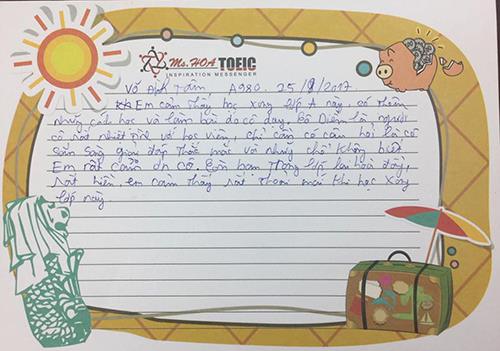 Ms.HOA TOEIC
INSPIRATION MESSENGER
Võ Anh Tâm, A980. 25/9/2017
Em cảm thấy học xong lớp A này, có thêm
những cách học và làm bài do cô dạy. Cô Diễm là người
cô rất nhiệt tình với học viên, chỉ cần có câu hỏi là cô
sẵn sàng giải đáp thắc mắc và những chỗ không biết
Em rất cảm ơn cô. Còn bạn trong lớp lại hoà đồng,
rất hiền, em cảm thấy rất thoải mái khi học xong
lớp này